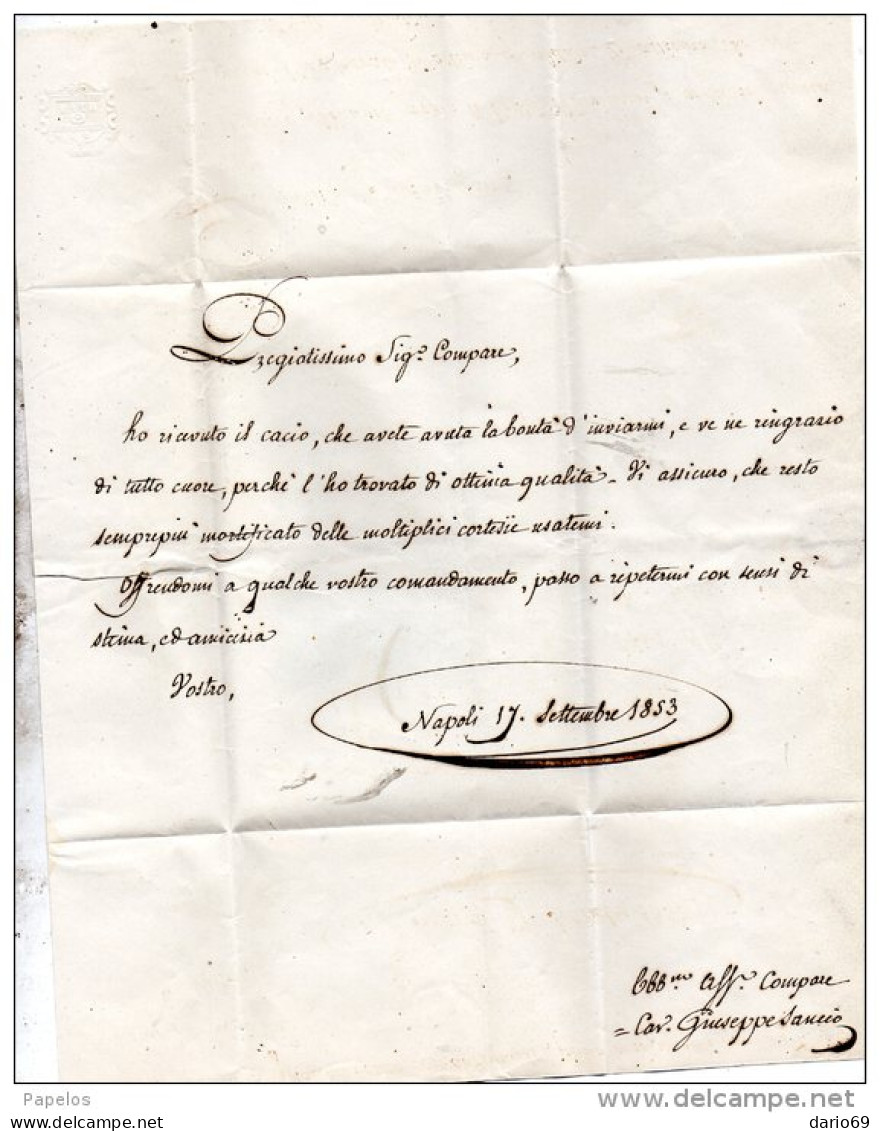 Pregiatissimo Sig.r Compare,
ho ricevuto il cacio, che avete avuta la bontà d'inviarmi, e ve ne ringrazio
di tutto cuore, perchè l'ho trovato di ottima qualità_ Vi assicuro, che resto
semprepiù mortificato delle moltiplici cortesie usatemi.
Offrendomi a qualche vostro comandamento, passo a ripetermi con sensi di
stima, ed amicizia
Vostro,
Napoli 17. Settembre 1853
Obb.mo Aff.o Compare
= Cav. Giuseppe Sancio
Papelos
www.delcampe.net
dario69